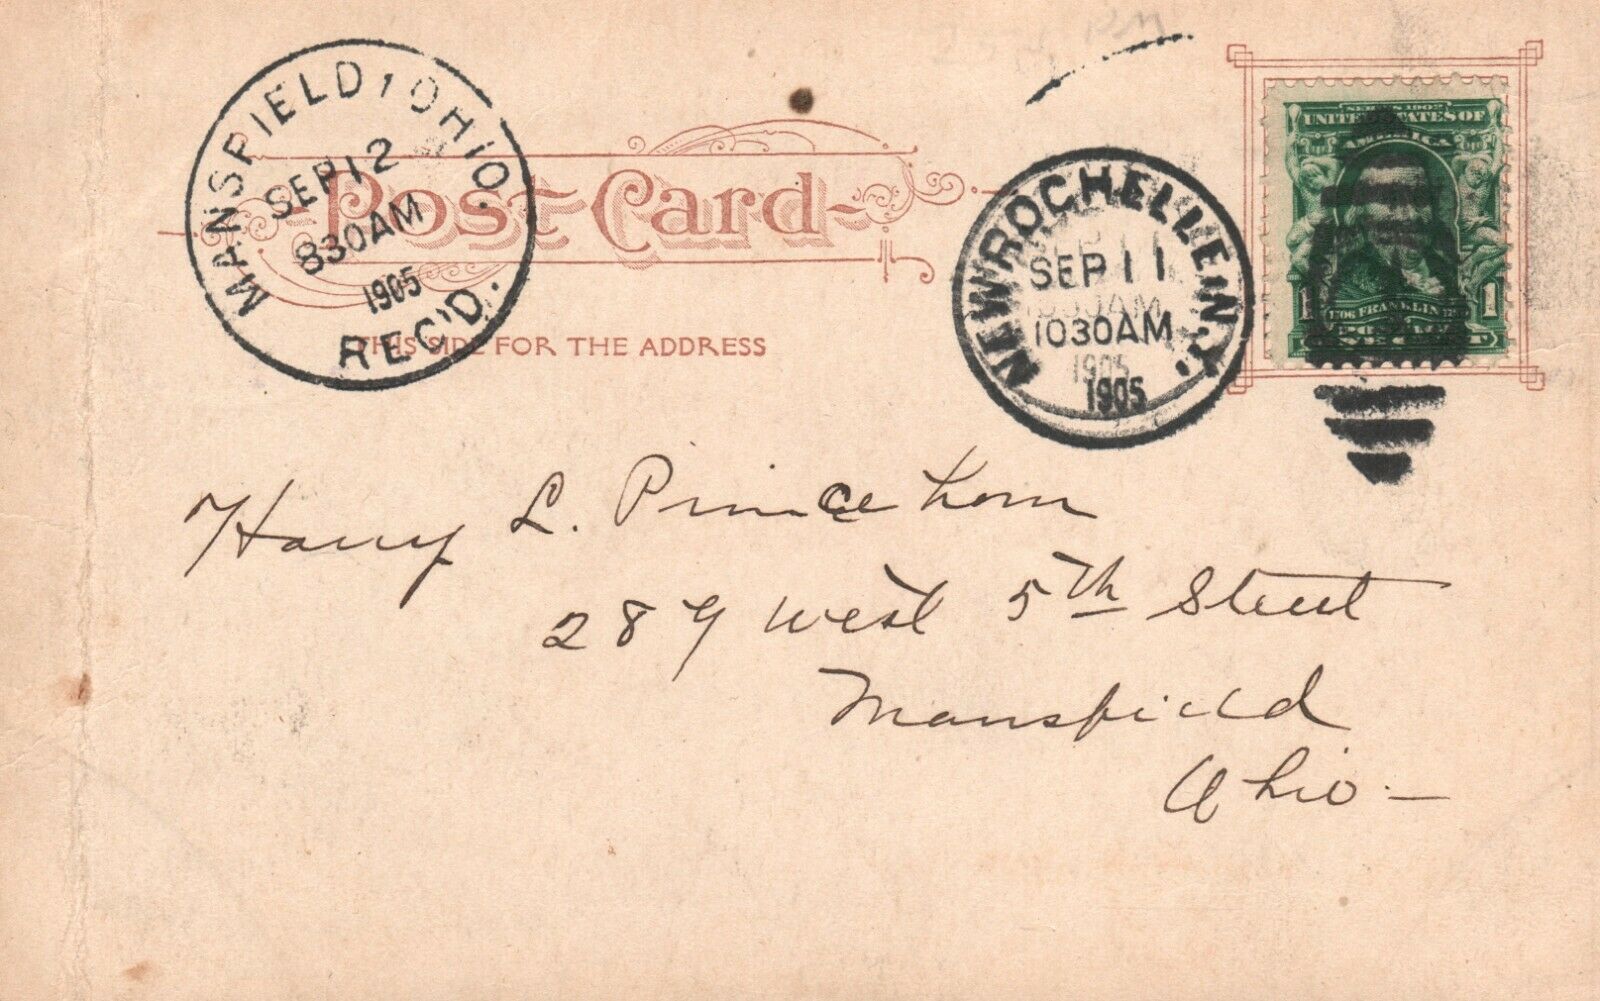 MANSFIELD, OHIO.
SEP 12
830AM
1905
REC'D.
Post Card
THIS SIDE FOR THE ADDRESS
NEW ROCHELLE, N.Y.
SEP 11
1030AM
1905
SERIES 1902
UNITED STATES OF
AMERICA
1 FRANKLIN 1
Harry L. Princehorn
289 West 5th Street
Mansfield
Ohio —